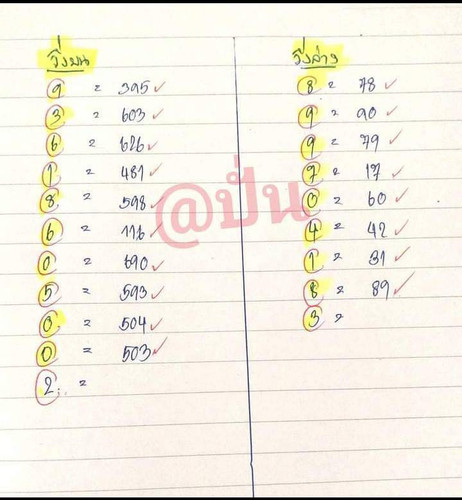 วิ่งบน
9 = 395 ✓
3 = 603 ✓
6 = 626 ✓
1 = 481 ✓
8 = 598 ✓
6 = 116 ✓
0 = 690 ✓
5 = 593 ✓
0 = 504 ✓
0 = 503 ✓
2 =
วิ่งล่าง
8 = 78 ✓
9 = 90 ✓
9 = 79 ✓
7 = 17 ✓
0 = 60 ✓
4 = 42 ✓
1 = 31 ✓
8 = 89 ✓
3 =
@ปั่น